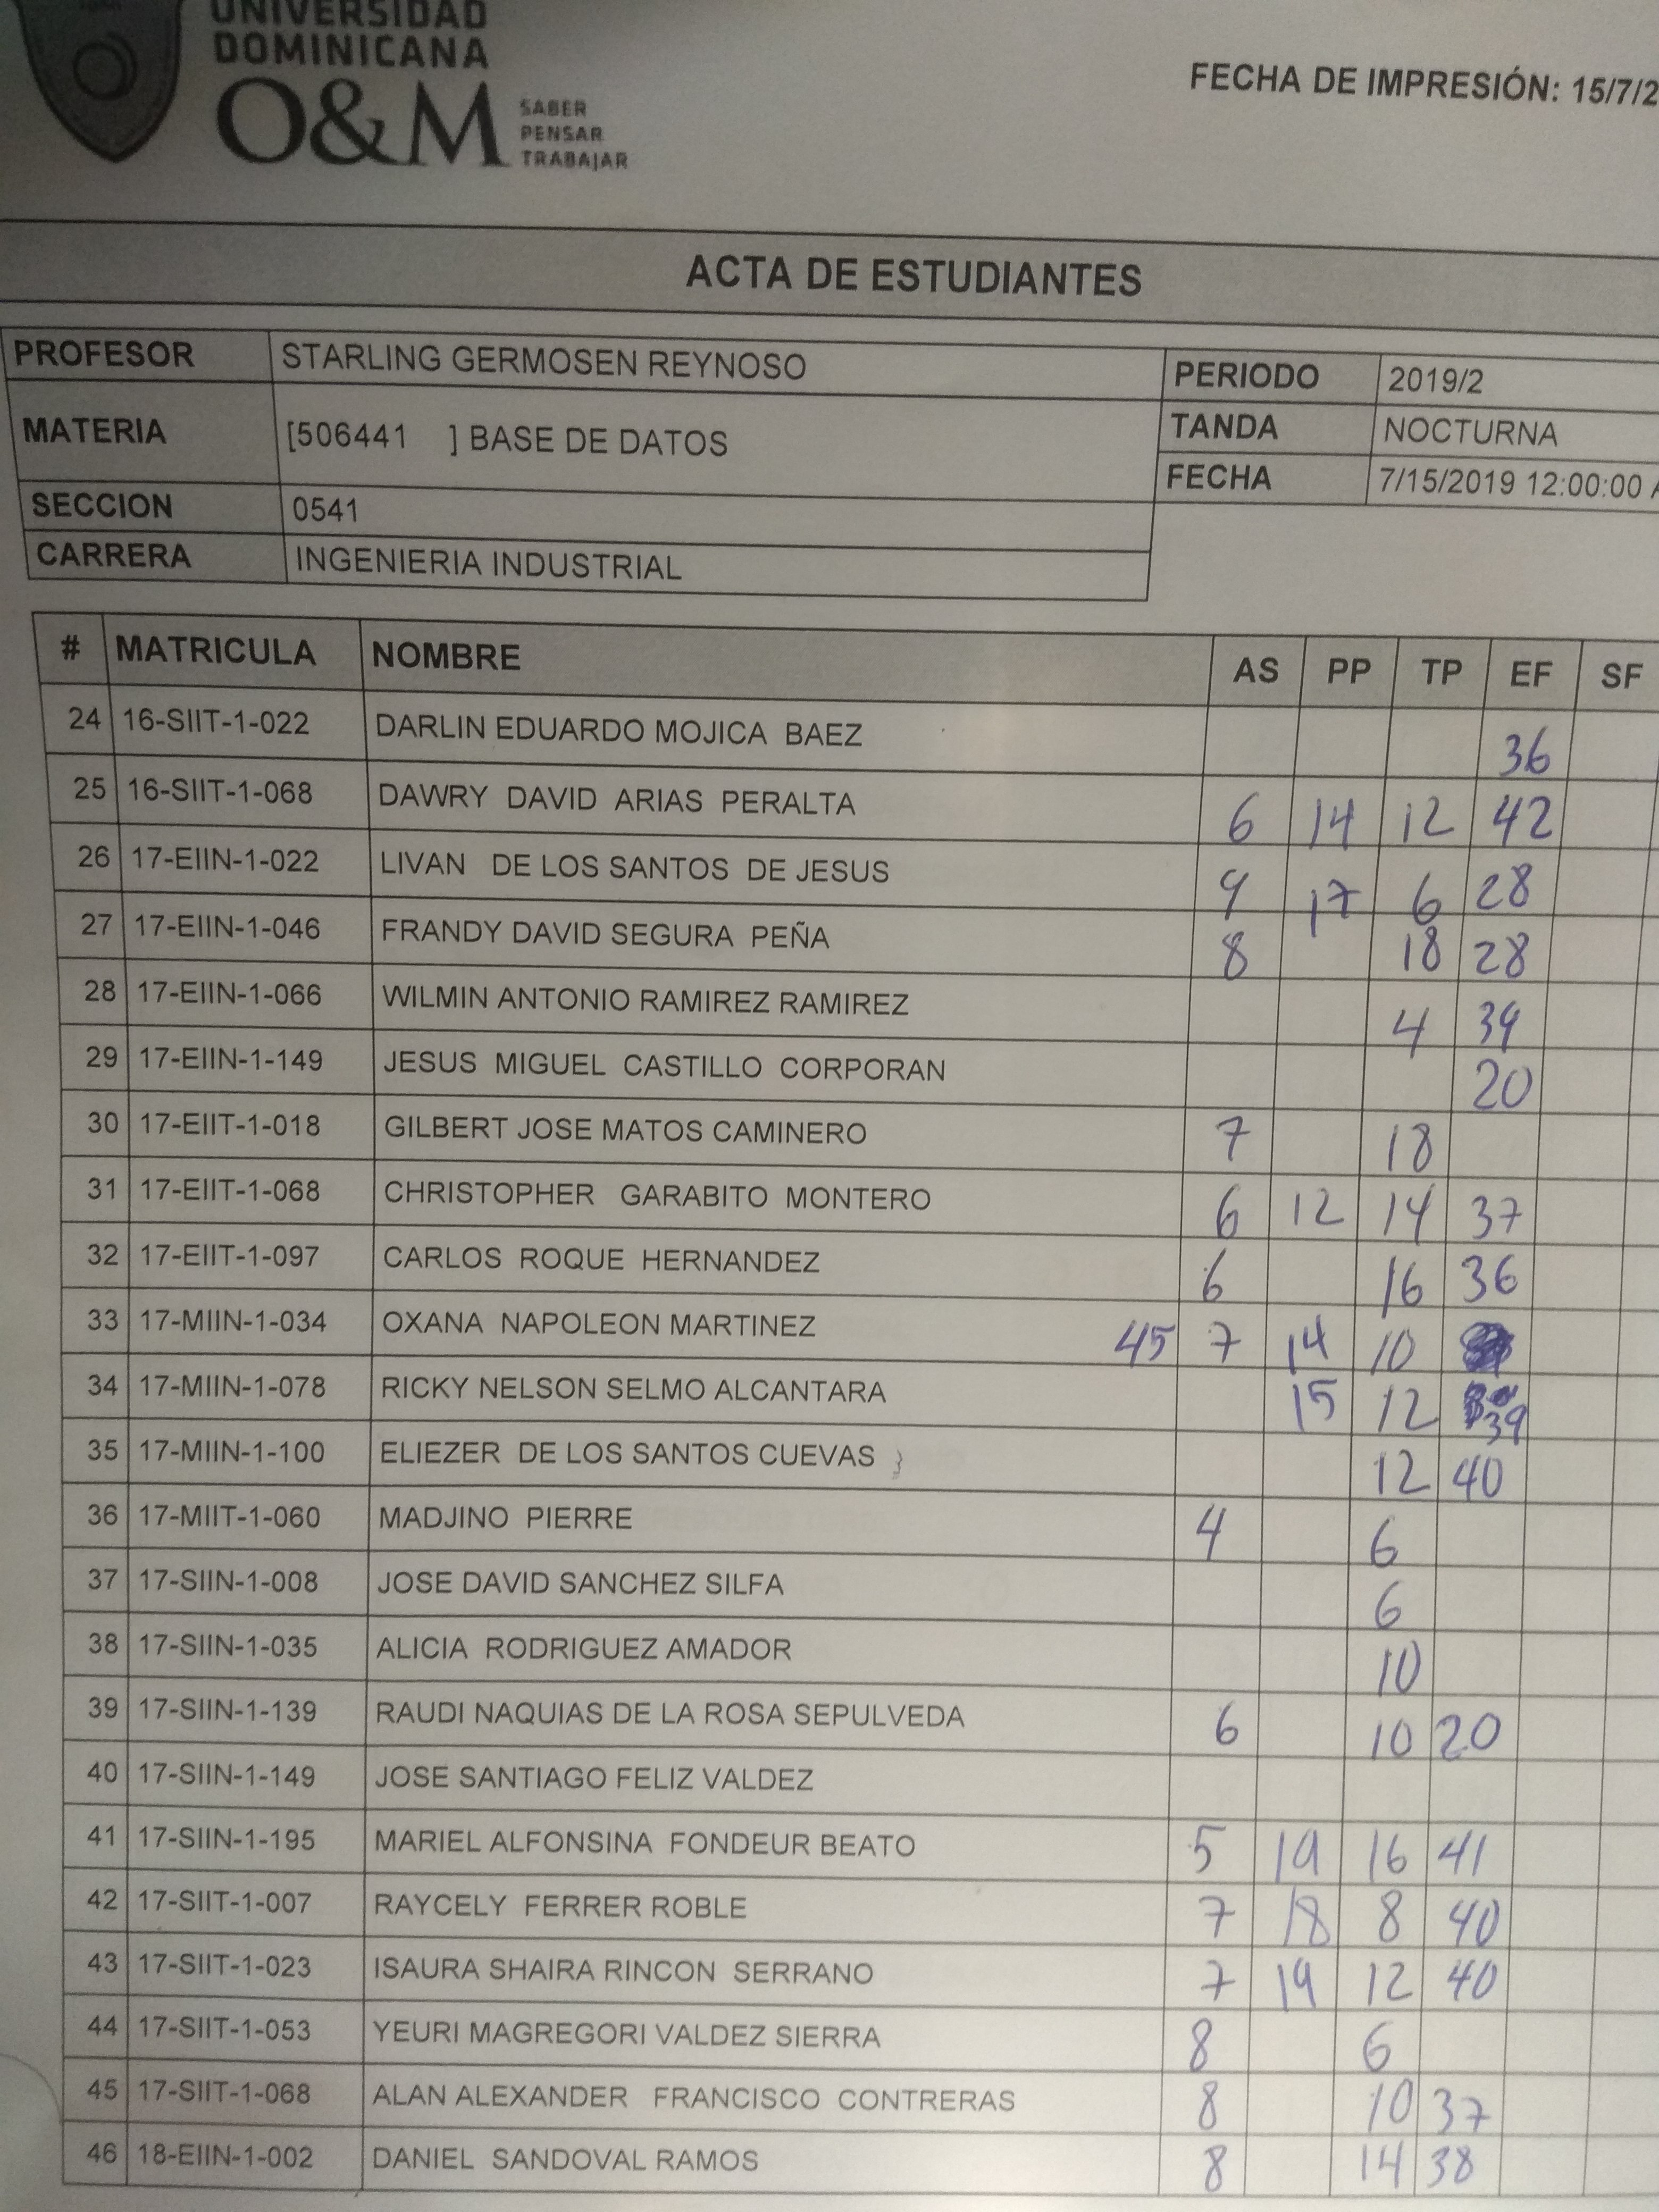 UNIVERSIDAD
DOMINICANA
O&M SABER
PENSAR
TRABAJAR
FECHA DE IMPRESIÓN: 15/7/2
ACTA DE ESTUDIANTES
PROFESOR STARLING GERMOSEN REYNOSO PERIODO 2019/2
MATERIA [506441 ] BASE DE DATOS TANDA NOCTURNA
FECHA 7/15/2019 12:00:00
SECCION 0541
CARRERA INGENIERIA INDUSTRIAL
# MATRICULA NOMBRE AS PP TP EF SF
24 16-SIIT-1-022 DARLIN EDUARDO MOJICA BAEZ 36
25 16-SIIT-1-068 DAWRY DAVID ARIAS PERALTA 6 14 12 42
26 17-EIIN-1-022 LIVAN DE LOS SANTOS DE JESUS 9 17 6 28
27 17-EIIN-1-046 FRANDY DAVID SEGURA PEÑA 8 18 28
28 17-EIIN-1-066 WILMIN ANTONIO RAMIREZ RAMIREZ 4 39
29 17-EIIN-1-149 JESUS MIGUEL CASTILLO CORPORAN 20
30 17-EIIT-1-018 GILBERT JOSE MATOS CAMINERO 7 18
31 17-EIIT-1-068 CHRISTOPHER GARABITO MONTERO 6 12 14 37
32 17-EIIT-1-097 CARLOS ROQUE HERNANDEZ 6 16 36
33 17-MIIN-1-034 OXANA NAPOLEON MARTINEZ 45 7 14 10
34 17-MIIN-1-078 RICKY NELSON SELMO ALCANTARA 15 12 39
35 17-MIIN-1-100 ELIEZER DE LOS SANTOS CUEVAS 12 40
36 17-MIIT-1-060 MADJINO PIERRE 4 6
37 17-SIIN-1-008 JOSE DAVID SANCHEZ SILFA 6
38 17-SIIN-1-035 ALICIA RODRIGUEZ AMADOR 10
39 17-SIIN-1-139 RAUDI NAQUIAS DE LA ROSA SEPULVEDA 6 10 20
40 17-SIIN-1-149 JOSE SANTIAGO FELIZ VALDEZ
41 17-SIIN-1-195 MARIEL ALFONSINA FONDEUR BEATO 5 19 16 41
42 17-SIIT-1-007 RAYCELY FERRER ROBLE 7 18 8 40
43 17-SIIT-1-023 ISAURA SHAIRA RINCON SERRANO 7 19 12 40
44 17-SIIT-1-053 YEURI MAGREGORI VALDEZ SIERRA 8 6
45 17-SIIT-1-068 ALAN ALEXANDER FRANCISCO CONTRERAS 8 10 37
46 18-EIIN-1-002 DANIEL SANDOVAL RAMOS 8 14 38